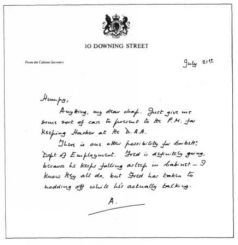 10 DOWNING STREET
From the Cabinet Secretary
July 21st
Humpy,
Anything, my dear chap. Just give me
some sort of case to present to the P.M. for
keeping Hacker at the D.A.A.
There is one other possibility for
Dept of Employment. Fred is definitely going,
because he keeps falling asleep in Cabinet – I
know they all do, but Fred has taken to
nodding off while he's actually talking.
A.